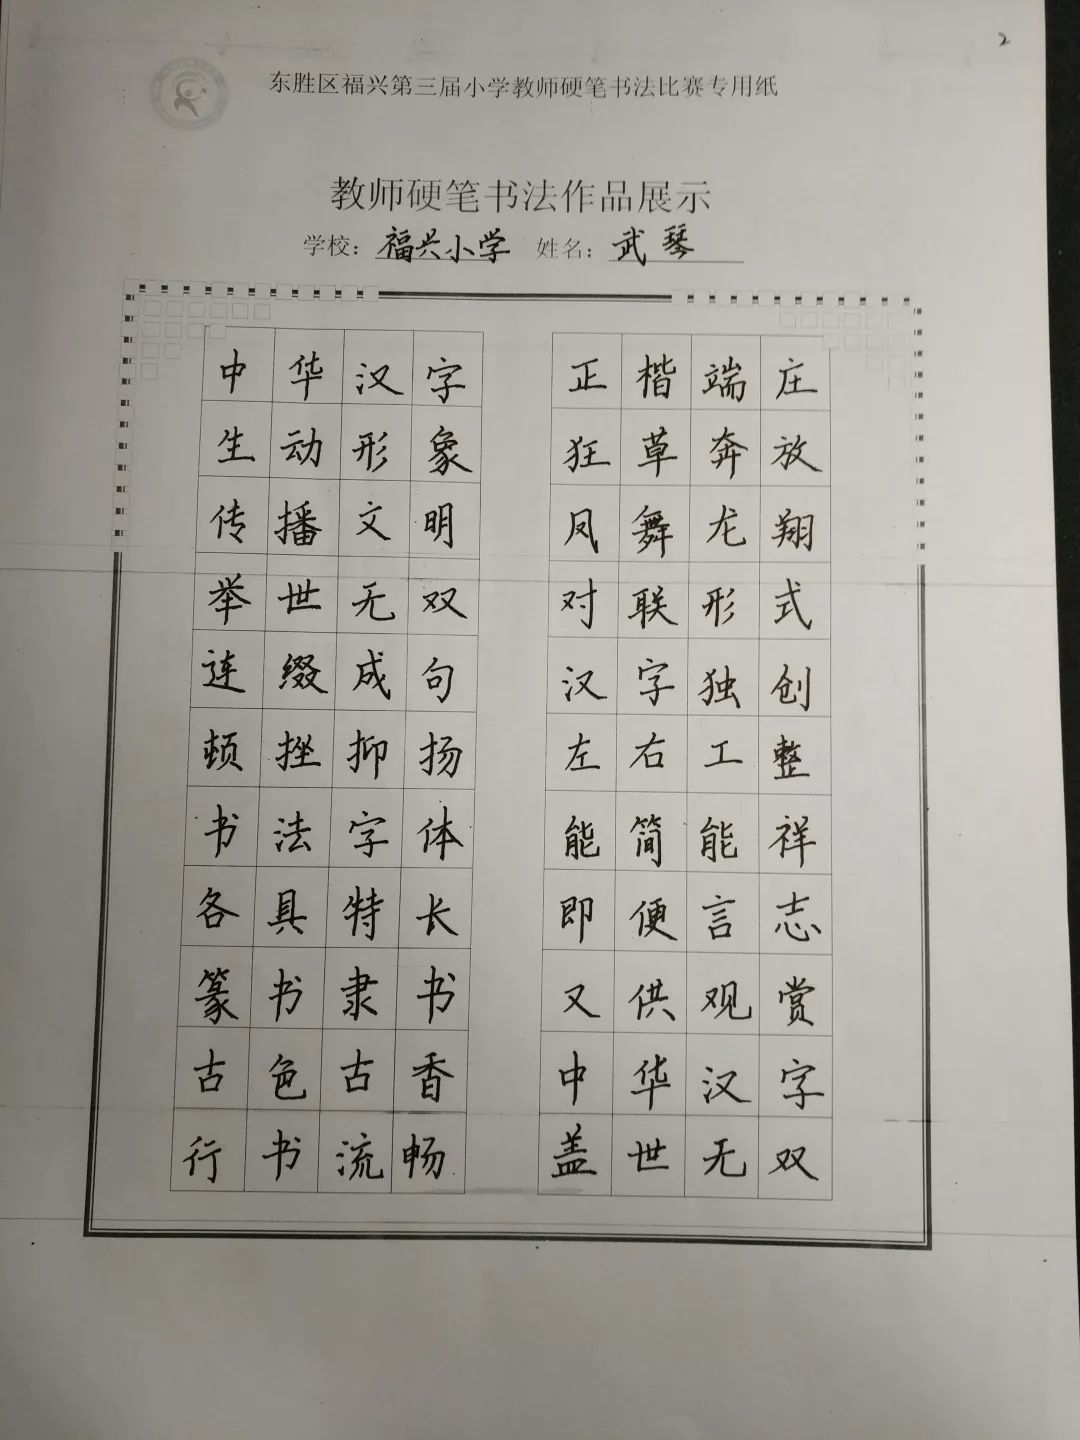 2
东胜区福兴第三届小学教师硬笔书法比赛专用纸
教师硬笔书法作品展示
学校：福兴小学 姓名：武琴
中华汉字
生动形象
传播文明
举世无双
连缀成句
顿挫抑扬
书法字体
各具特长
篆书隶书
古色古香
行书流畅
正楷端庄
狂草奔放
凤舞龙翔
对联形式
汉字独创
左右工整
能简能祥
即便言志
又供观赏
中华汉字
盖世无双